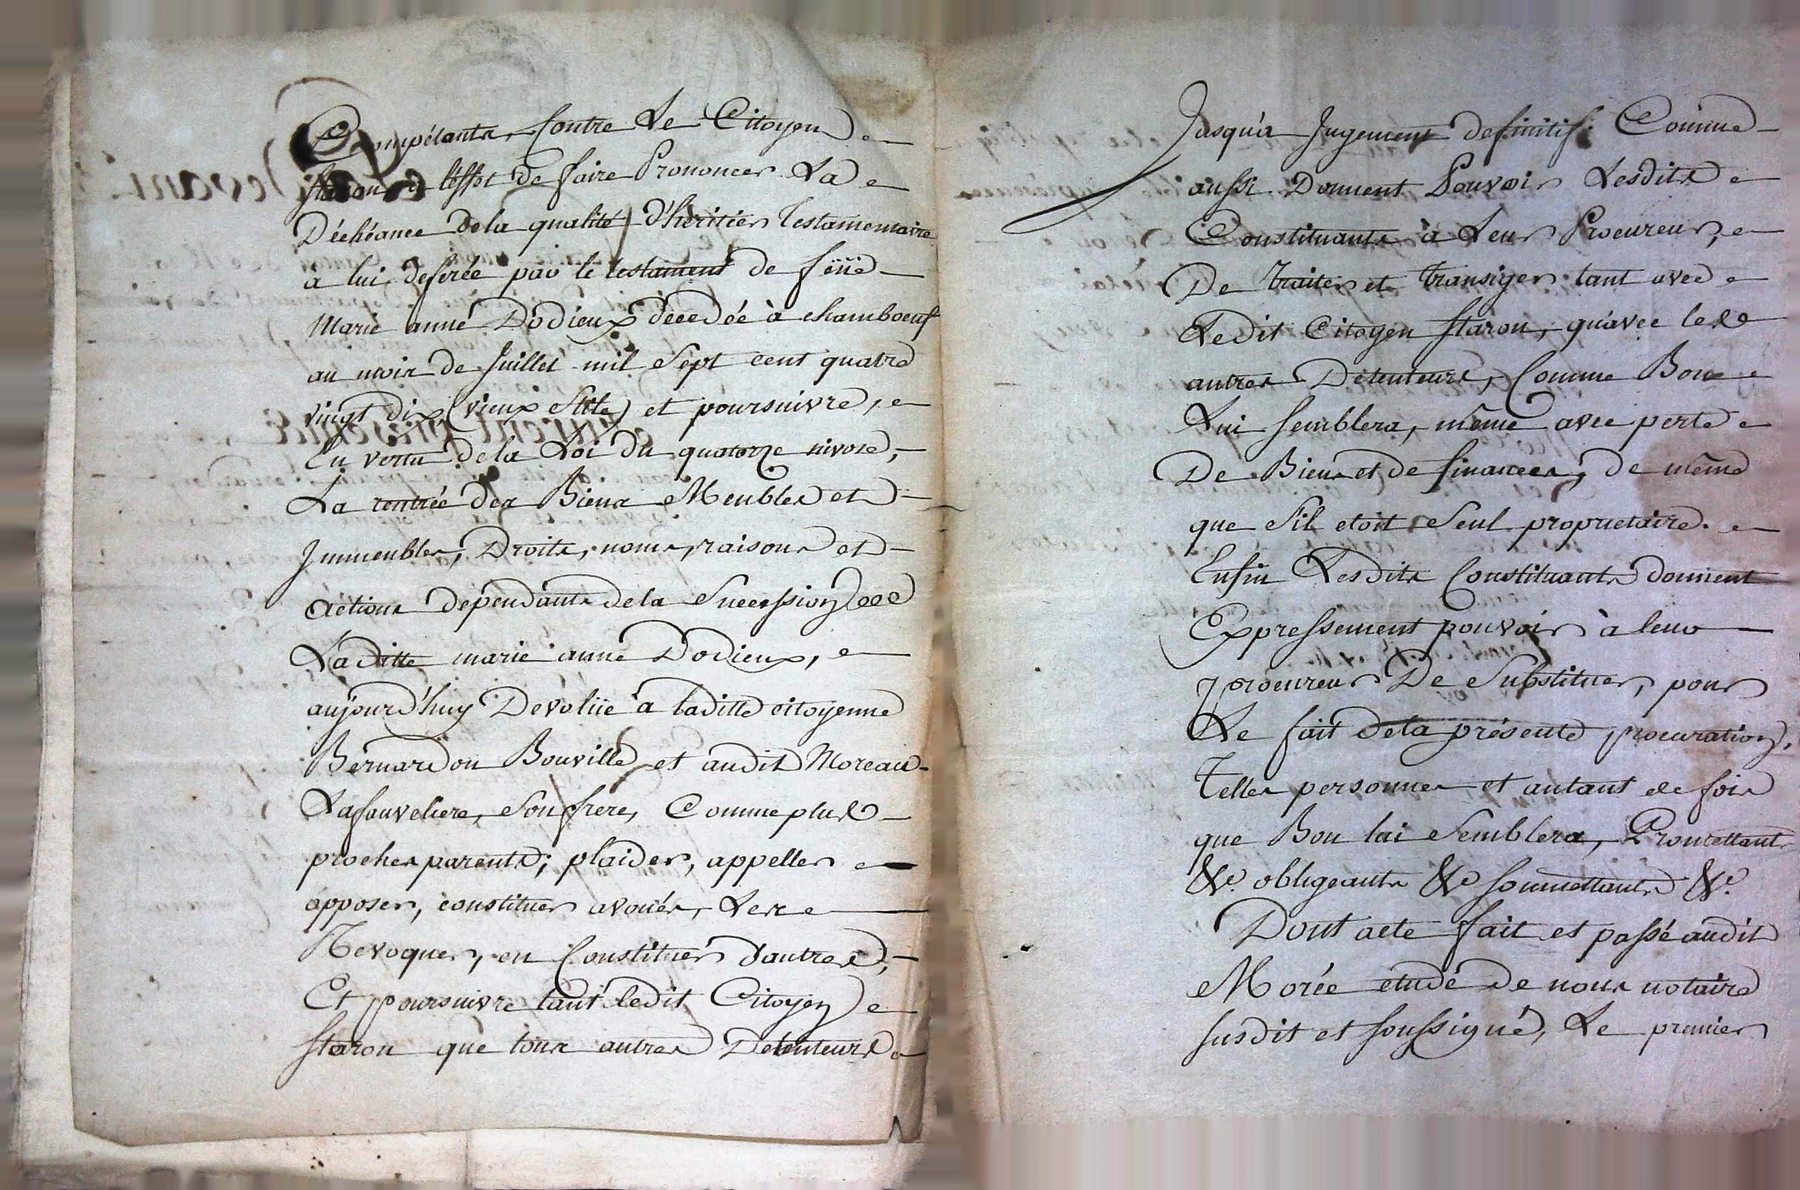 Compétants, Contre Le Citoyen
staron a leffet de faire Prononcer La
Déchéance de la qualité d'héritier Testamentaire
a lui deferée par le testament de feüe
Marie anne Dodieux décedée à chamboeuf
au mois de Juillet mil sept cent quatre
vingt dix (vieux stile) et poursuivre,
En vertu de la Loi du quatorze nivose,
La rentrée des Biens Meubles et
Immeubles, Droits, noms, raisons et
actions dependants de la succession de
Laditte marie anne Dodieux,
aujourd'huy Devolüe à laditte citoyenne
Bernardon Bouville et audit Moreau
Lafauveliere, son frere, Comme plus
proches parents; plaider, appeller
opposer, constituer avoués, Les
Revoquer, en Constituer d'autres,
Et poursuivre tant ledit Citoyen
staron que tous autres Detenteurs
Jusqu'a Jugement definitif. Comme
aussi Donnent Pouvoir Lesdits
Constituants à Leur Procureur,
De traiter et transiger tant avec
Ledit Citoyen staron, qu'avec les
autres Detenteurs, Comme Bon
Lui semblera, même avec perte
De Biens et de finances, de même
que s'il etoit seul proprietaire.
Enfin Lesdits Constituants donnent
Expressement pouvoir à leur
procureur De Substituer, pour
Le fait de la présente procuration,
Telles personnes et autant de fois
que Bon lui semblera, Promettant
&c. obligeants &c soumettants &c.
Dont acte fait et passé audit
Morée etude de nous notaire
susdit et soussigné, Le premier